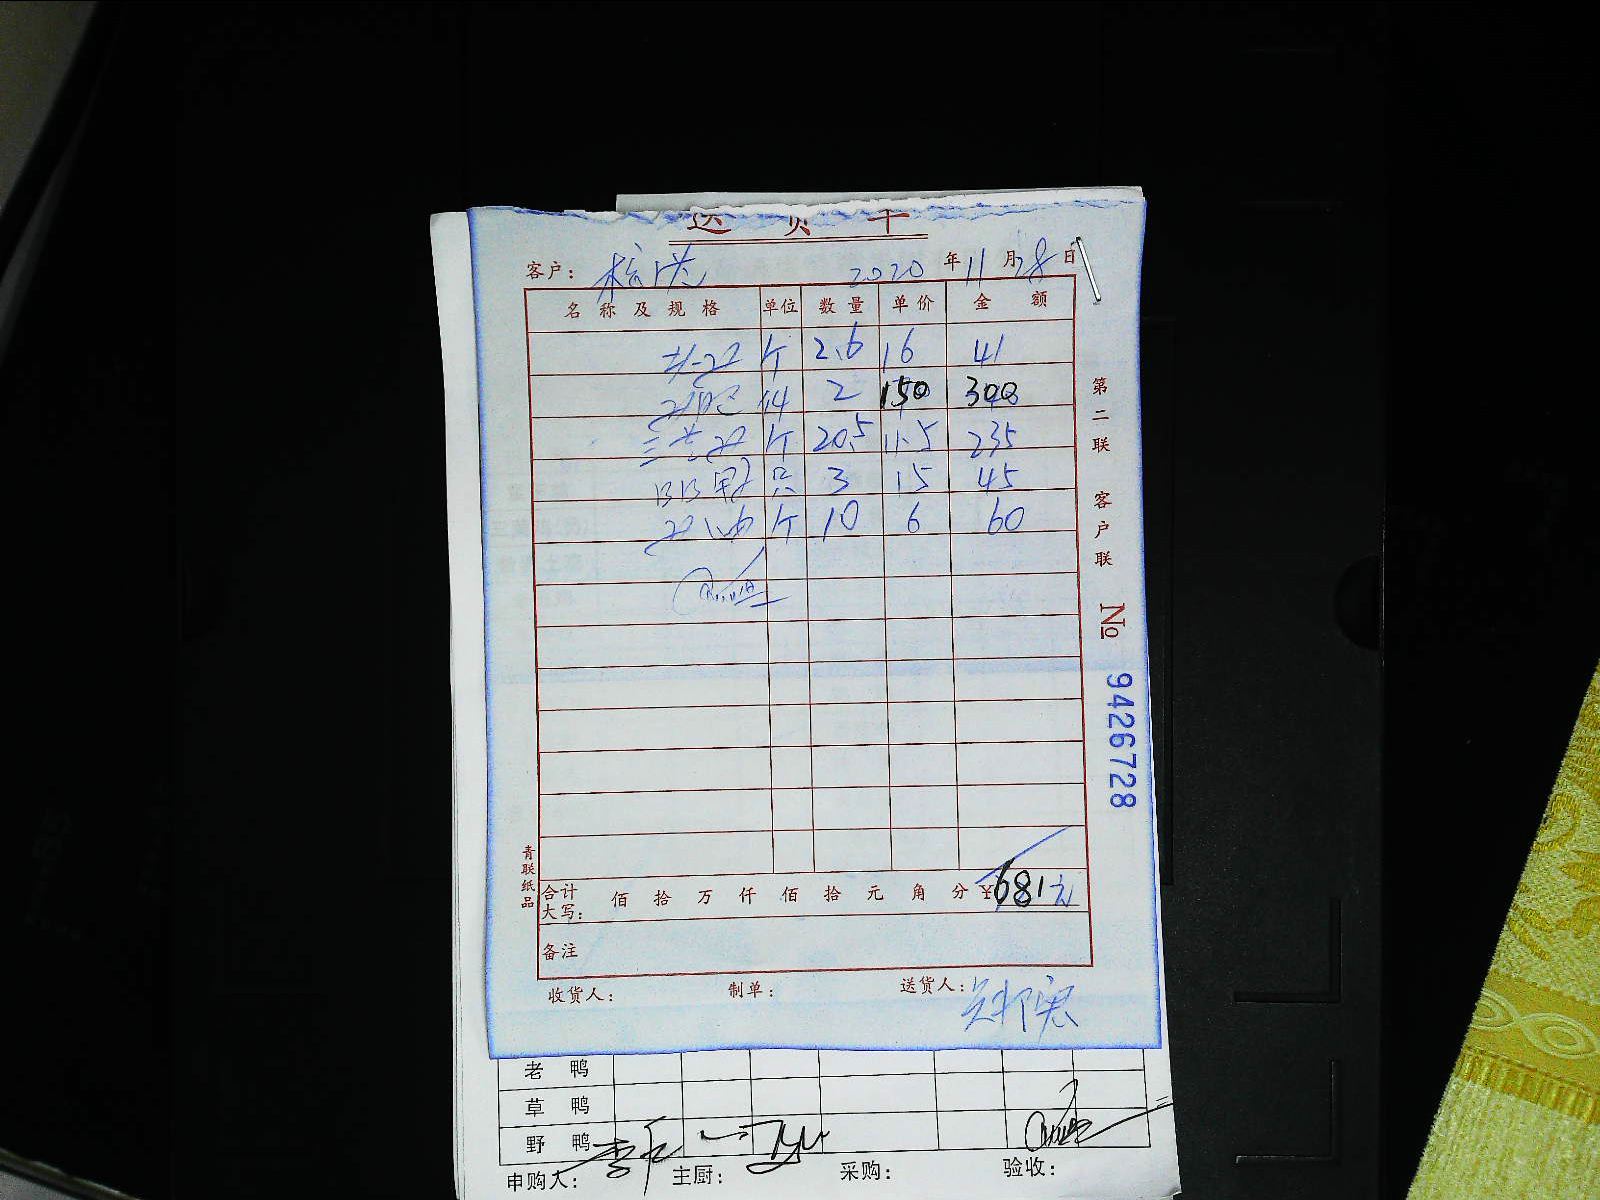 送货单
客户： 2020年11月28日
名称及规格 单位 数量 单价 金额
2.6 16 41
2 150 300
三黄 20.5 11.5 235
BB 只 3 15 45
10 6 60
第二联 客户联 № 9426728
青联纸品
合计大写： 佰 拾 万 仟 佰 拾 元 角 分 ¥681元
备注
收货人： 制单： 送货人：
老鸭
草鸭
野鸭
申购人： 主厨： 采购： 验收：